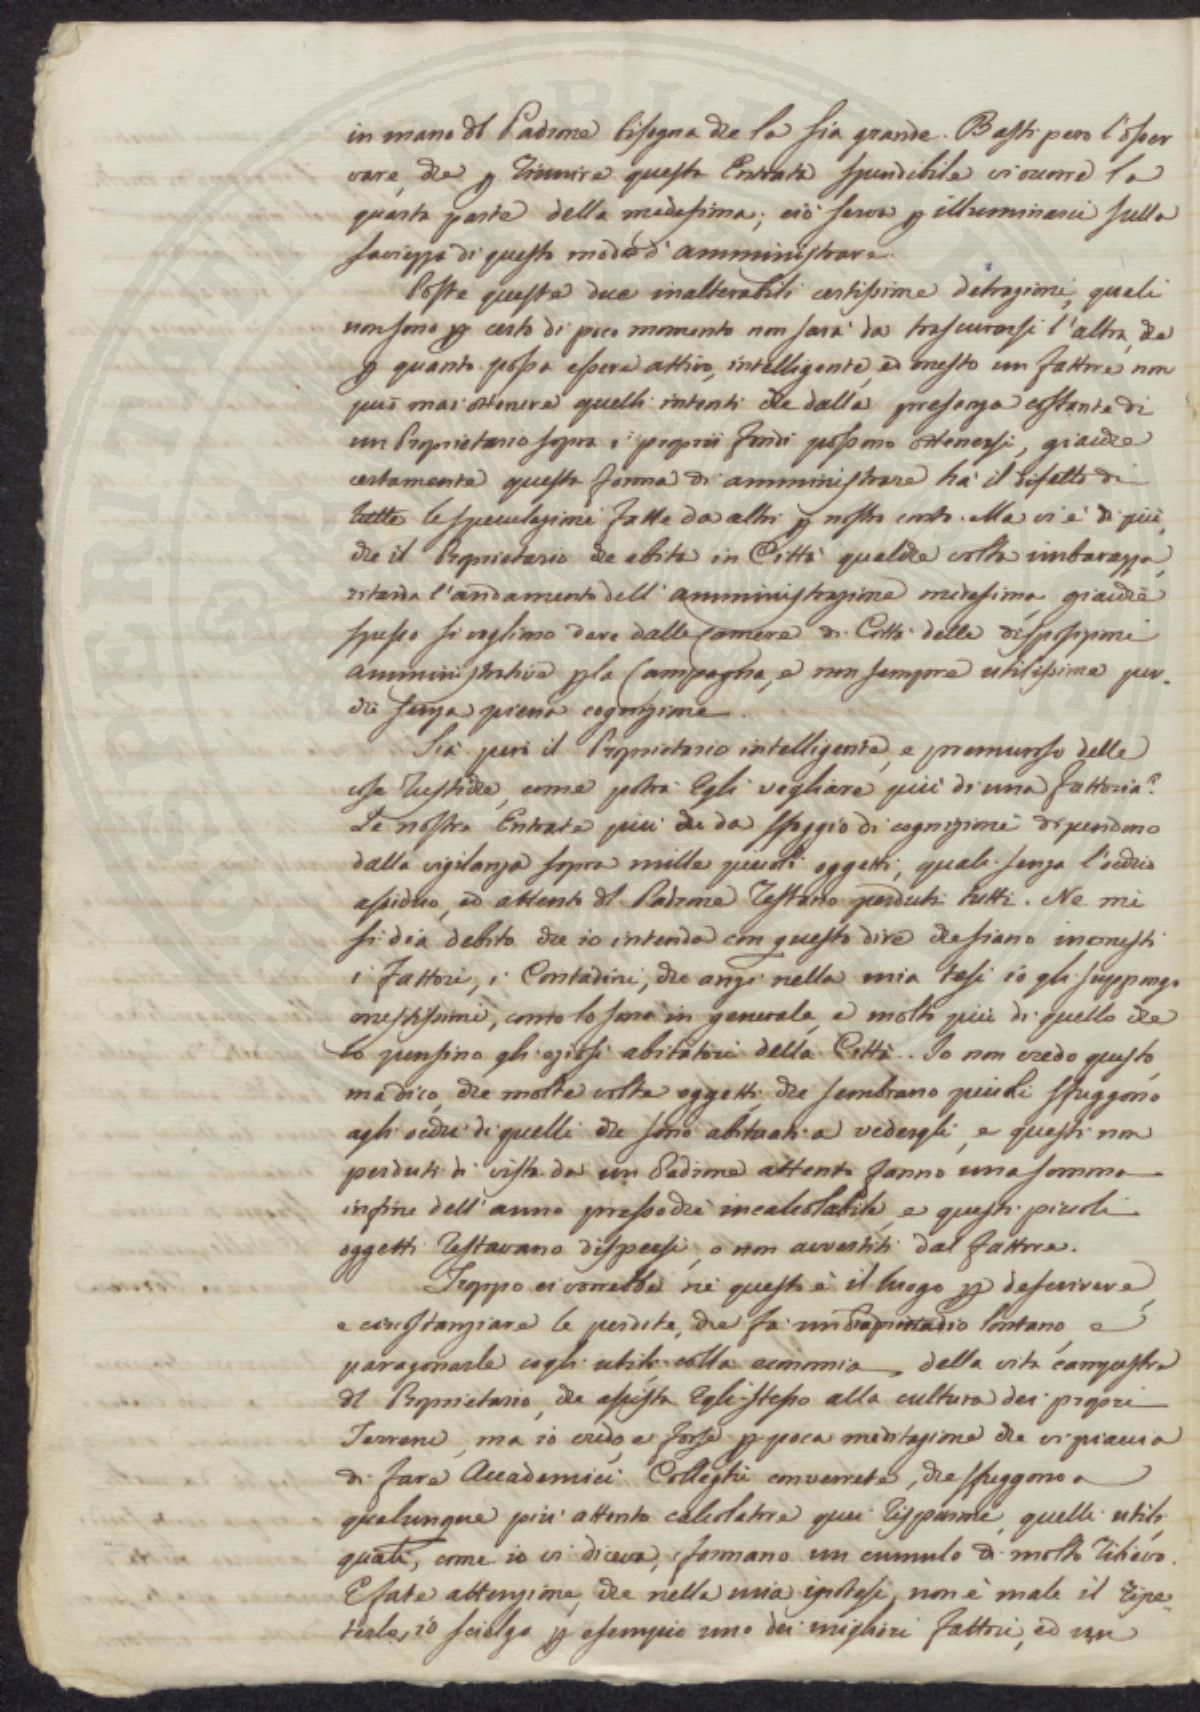 in mano dl Padrone bisogna che la sia grande. Basti però l'osser
vare, che p riunire questa Entrata spendibile vi occorre la
quarta parte della medesima; ciò serva p illuminarci sulla
saviezza di questo modo d'amministrare.
Poste queste due inalterabili certissime detrazioni, quali
non sono p certo di poco momento non sarà da trascurarsi l'altra, che
p quanto possa essere attivo, intelligente, ed onesto un fattore non
può mai ottenere quelli intenti che dalla presenza costante di
un Proprietario sopra i proprii fondi possono ottenersi, giacchè
certamente questa forma di amministrare há il difetto di
tutte le speculazioni fatte da altri p nostro conto. Ma vi è di più,
che il Proprietario che abita in Città qualche volta imbarazza,
ritarda l'andamento dell'amministrazione medesima, giacchè
spesso si vogliono dare dalle Camere di Città delle disposizioni
amministrative p la Campagna, e non sempre utilissime per-
chè senza piena cognizione.
Sia però il Proprietario intelligente, e premuroso delle
cose rustiche, come potrà Egli vegliare più di una fattoria?
Le nostre Entrate più che da sfoggio di cognizioni dipendono
dalla vigilanza sopra mille piccoli oggetti, quali senza l'occhio
assiduo, ed attento dl Padrone restano perduti tutti. Ne mi
si dia debito che io intenda con questo dire che siano inonesti
i fattori, i Contadini, che anzi nella mia tesi io gli suppongo
onestissimi, como lo sono in generale, e molto più di quello che
lo pensino gli oziosi abitatori della Città. Io non credo questo,
ma dico, che molte volte oggetti che sembrano piccoli sfuggono
agli occhi di quelli che sono abituati a vedergli, e questi non
perduti di vista da un Padrone attento fanno una somma
infine dell'anno pressochè incalcolabile, e questi piccoli
oggetti restavano dispersi, o non avvertiti dal fattore.
Troppo ci vorrebbe nè questo è il luogo p descrivere,
e circostanziare le perdite, che fà un Proprietario lontano, e
paragonarle cogli utili colla economia della vita campestre
dl Proprietario, che assista Egli stesso alla cultura dei proprii
Terreni, ma io credo, e forse p poca meditazione che vi piaccia
di fare Accademici Colleghi converrete, che sfuggono a
qualunque più attento calcolatore quei risparmi, quelli utili
quali, come io vi diceva, formano un cumulo di molto rilievo.
E fate attenzione, che nella mia ipotesi, non è male il ripe-
terle, io sciolgo p esempio uno dei migliori fattori, ed un